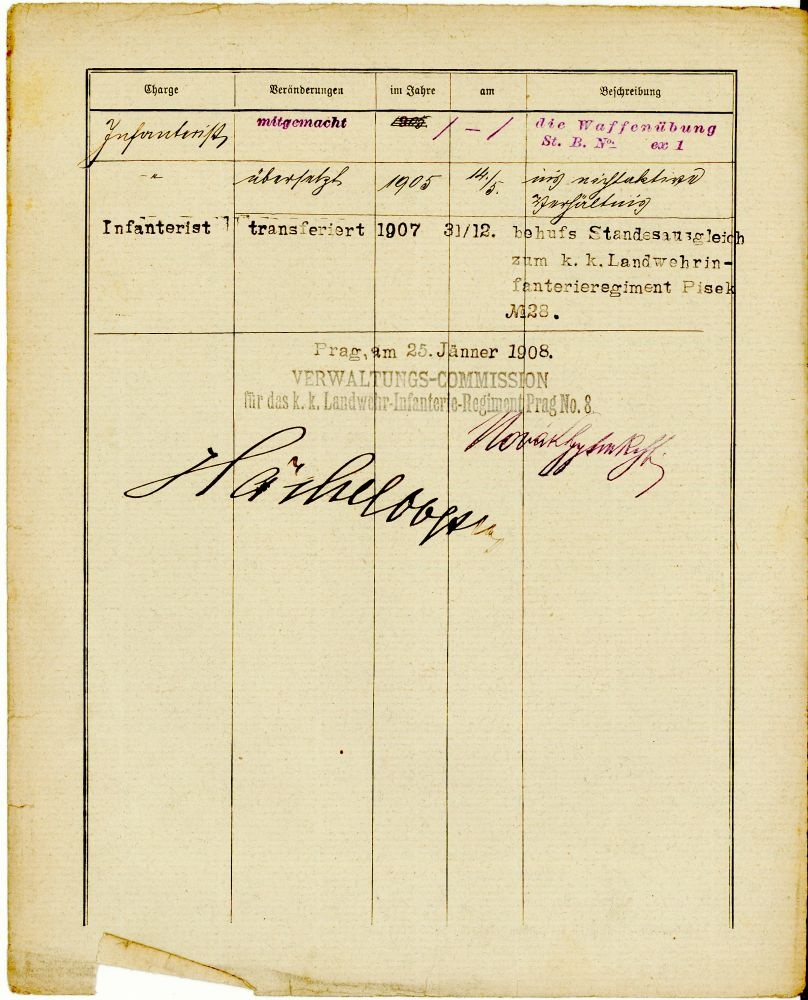 Charge Veränderungen im Jahre am Beschreibung
Infanterist mitgemacht / – / die Waffenübung
St. B. No. ex 1
" übersetzt 1905 14/5. ins nichtaktive
Verhältnis
Infanterist transferiert 1907 31/12. behufs Standesausgleich
zum k. k. Landwehrin-
fanterieregiment Pisek
№28.
Prag, am 25. Jänner 1908.
VERWALTUNGS-COMMISSION
für das k. k. Landwehr-Infanterie-Regiment Prag No. 8.